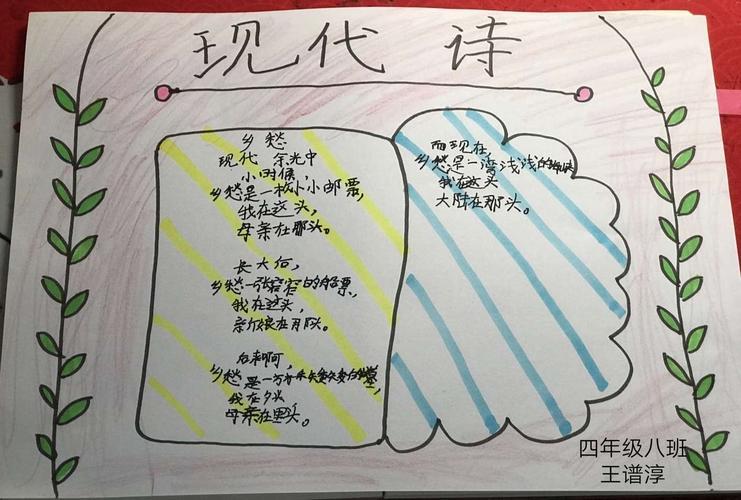 现代 诗
乡愁
现代 余光中
小时候,
乡愁是一枚小小邮票,
我在这头,
母亲在那头。
长大后,
乡愁一张窄窄的船票,
我在这头,
新娘在那头。
后来啊,
乡愁是一方矮矮的坟墓,
我在外头
母亲在里头。
而现在,
乡愁是一湾浅浅的海峡
我在这头
大陆在那头。
四年级八班
王谱淳